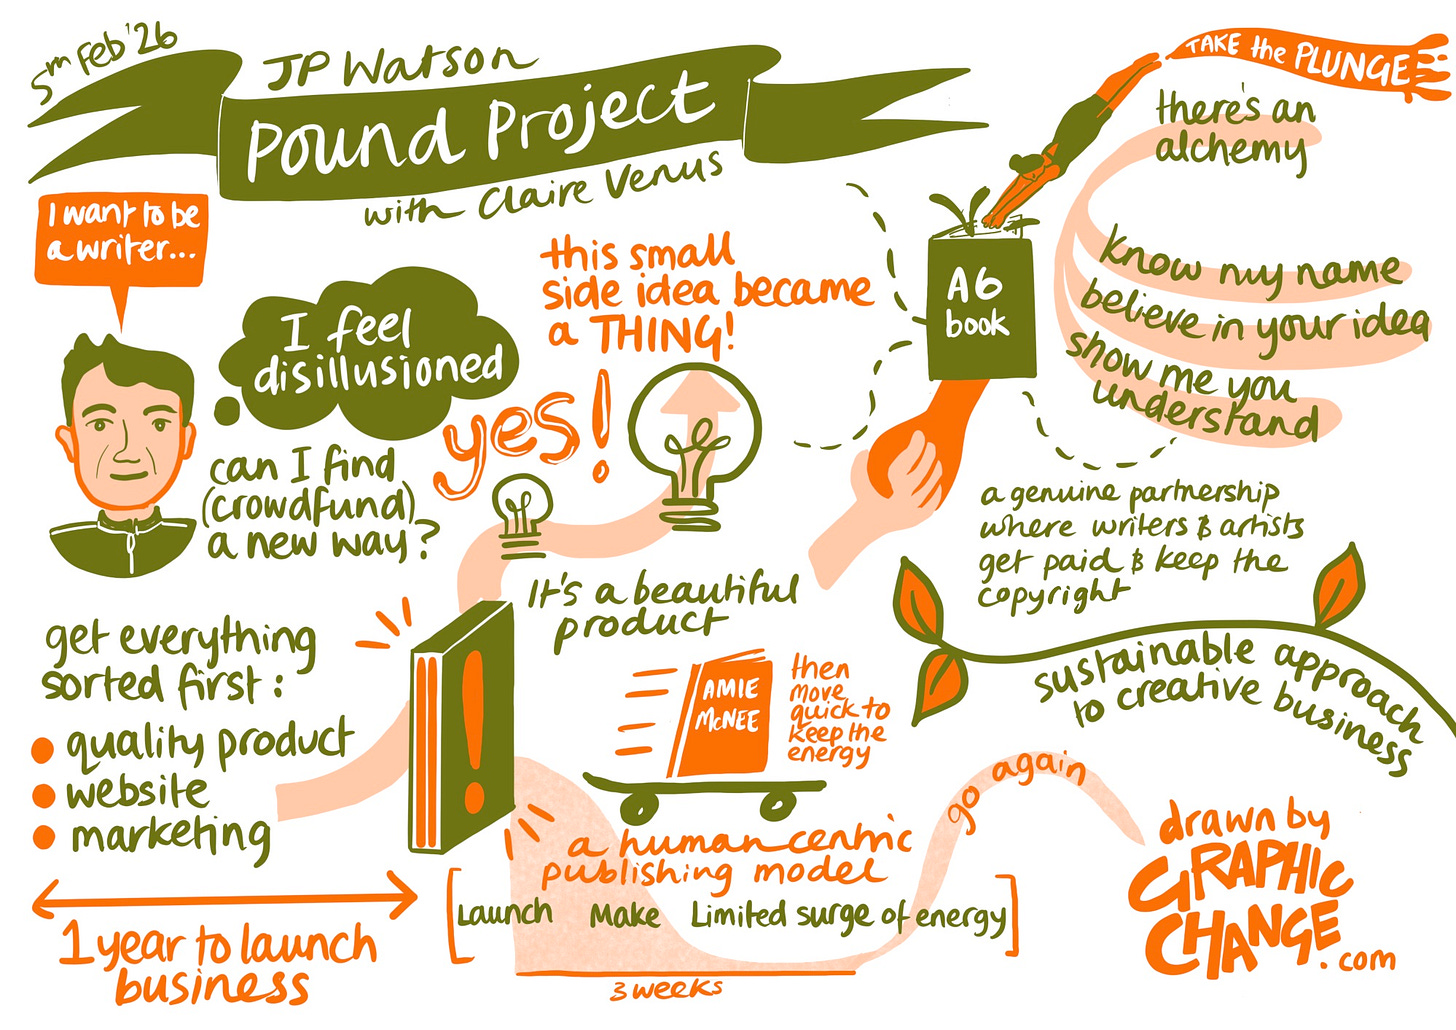 5th Feb '26
JP Watson
Pound Project
with Claire Venus
I want to be
a writer...
I feel
disillusioned
can I find
(crowdfund)
a new way?
yes!
this small
side idea became
a THING!
It's a beautiful
product
get everything
sorted first:
quality product
website
marketing
1 year to launch
business
AMIE
McNEE
then
move
quick to
keep the
energy
a human centric
publishing model
Launch Make Limited surge of energy
3 weeks
go again
TAKE the PLUNGE
A6
book
there's an
alchemy
know my name
believe in your idea
show me you
understand
a genuine partnership
where writers & artists
get paid & keep the
copyright
sustainable approach
to creative business
drawn by
GRAPHIC
CHANGE
.com